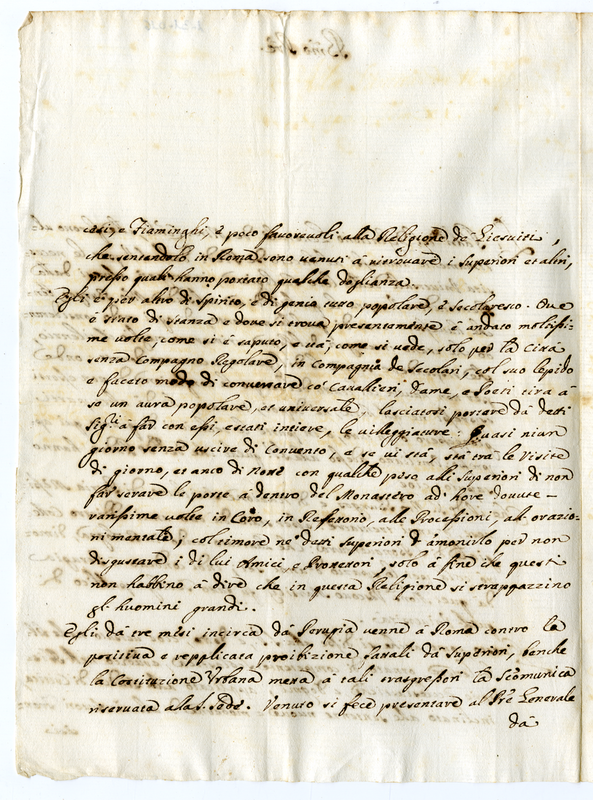 cesi, e Fiaminghi, è poco favorevoli alla Religione de Giesuiti,
che sentendolo in Roma sono venuti à ritrovare i Superiori et altri,
presso quali hanno portato qualche doglianza.
Egli è per altro di spirito, e di genio tutto popolare, è secolaresco. Ove
è stato di stanza e dove si trova presentamente è andato moltissi-
me volte, come si è saputo, e stà, come si vede, solo per la Città
senza Compagno Regolare, in Compagnia de Secolari, col suo lepido
e faceto modo di conversare cò Cavallieri, Dame, e Poeti tira à
se un aura popolare, et universale lasciatosi portare dà detti
Sig.ri à far con essi, estati intiere, le villeggiature: Quasi niun
giorno senza uscire di Convento, e se vi stà, stà trà le Visite
di giorno, et anco di Notte con qualche peso alli Superiori di non
far serare le porte à dentro del Monastero ad' hore dovute -
rarissime volte in Coro, in Refettorio, alle Processioni, all orazio-
ni mentale; col timore ne' detti Superiori d' amonirlo per non
disgustare i di lui Amici, e Protettori, solo à fine che questi
non habbino à dire che in questa Religione si strappazzino
gl: huomini grandi..
Egli dà tre mesi incirca dà Perugia venne à Roma contro la
positiva e repplicata proibizione fattali dà Superiori, benche
la Costituzione Urbana metta à tali trasgressori la Scomunica
riservata ala S. Sede. Venuto si fece presentare al Pre Generale
dà